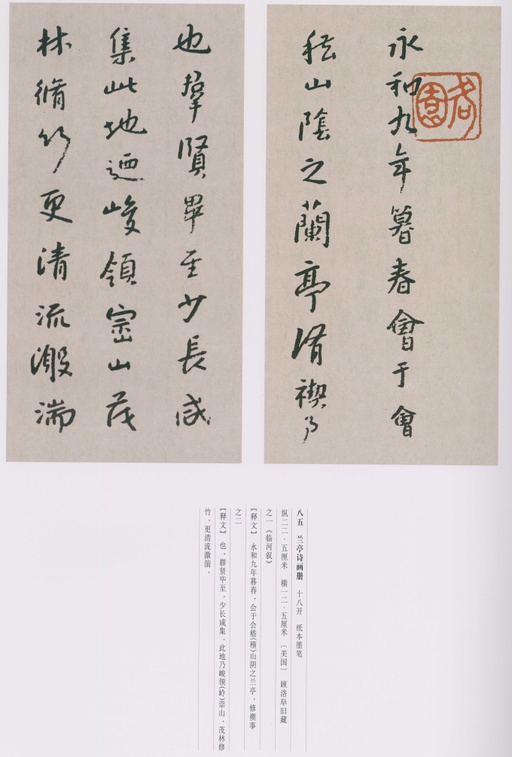 永和九年暮春會于會
嵇山陰之蘭亭脩禊事
也羣賢畢至少長咸
集此地迺峻領崈山茂
林脩竹更清流激湍
八五 兰亭诗画册 十八开 纸本墨笔
纵二二·五厘米 横一二·五厘米 〔美国〕 顾洛阜旧藏
之一《临河叙》
【释文】 永和九年暮春，会于会嵇(稽)山阴之兰亭，修禊事
之二
【释文】 也。群贤毕至，少长咸集。此地乃峻领(岭)崇山，茂林修
竹，更清流激湍。